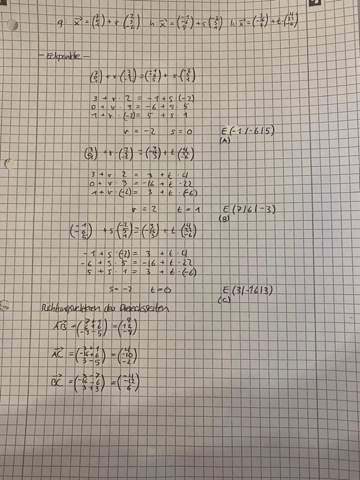 g: x⃗ = (3/0/1) + r · (2/3/-2)  h: x⃗ = (-1/-6/5) + s (-2/5/1)  i: x⃗ = (3/-16/3) + t · (4/22/-6)
- Eckpunkte -
(3/0/1) + r · (2/3/-2) = (-1/-6/5) + s · (-2/5/1)
3 + r · 2 = -1 + s · (-2)
0 + r · 3 = -6 + s · 5
1 + r · (-2) = 5 + s · 1
r = -2  s = 0  E(-1/-6/5)
(A)
(3/0/1) + r · (2/3/-2) = (3/-16/3) + t · (4/22/-6)
3 + r · 2 = 3 + t · 4
0 + r · 3 = -16 + t · 22
1 + r · (-2) = 3 + t · (-6)
r = 2  t = 1  E(7/6/-3)
(B)
(-1/-6/5) + s · (-2/5/1) = (3/-16/3) + t · (4/22/-6)
-1 + s · (-2) = 3 + t · 4
-6 + s · 5 = -16 + t · 22
5 + s · 1 = 3 + t · (-6)
s = -2  t = 0  E(3/-16/3)
(C)
Richtungsvektoren der Dreiecksseiten
AB⃗ = (7+1/6+6/-3-5) = (8/12/-8)
AC⃗ = (3+1/-16+6/3-5) = (4/-10/-2)
BC⃗ = (3-7/-16-6/3+3)